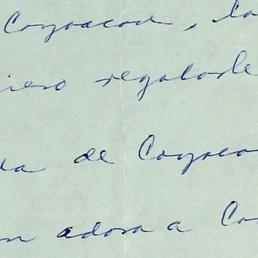 Coyoacan, la
iero regalarle
da de Coyoa
n adora a Co